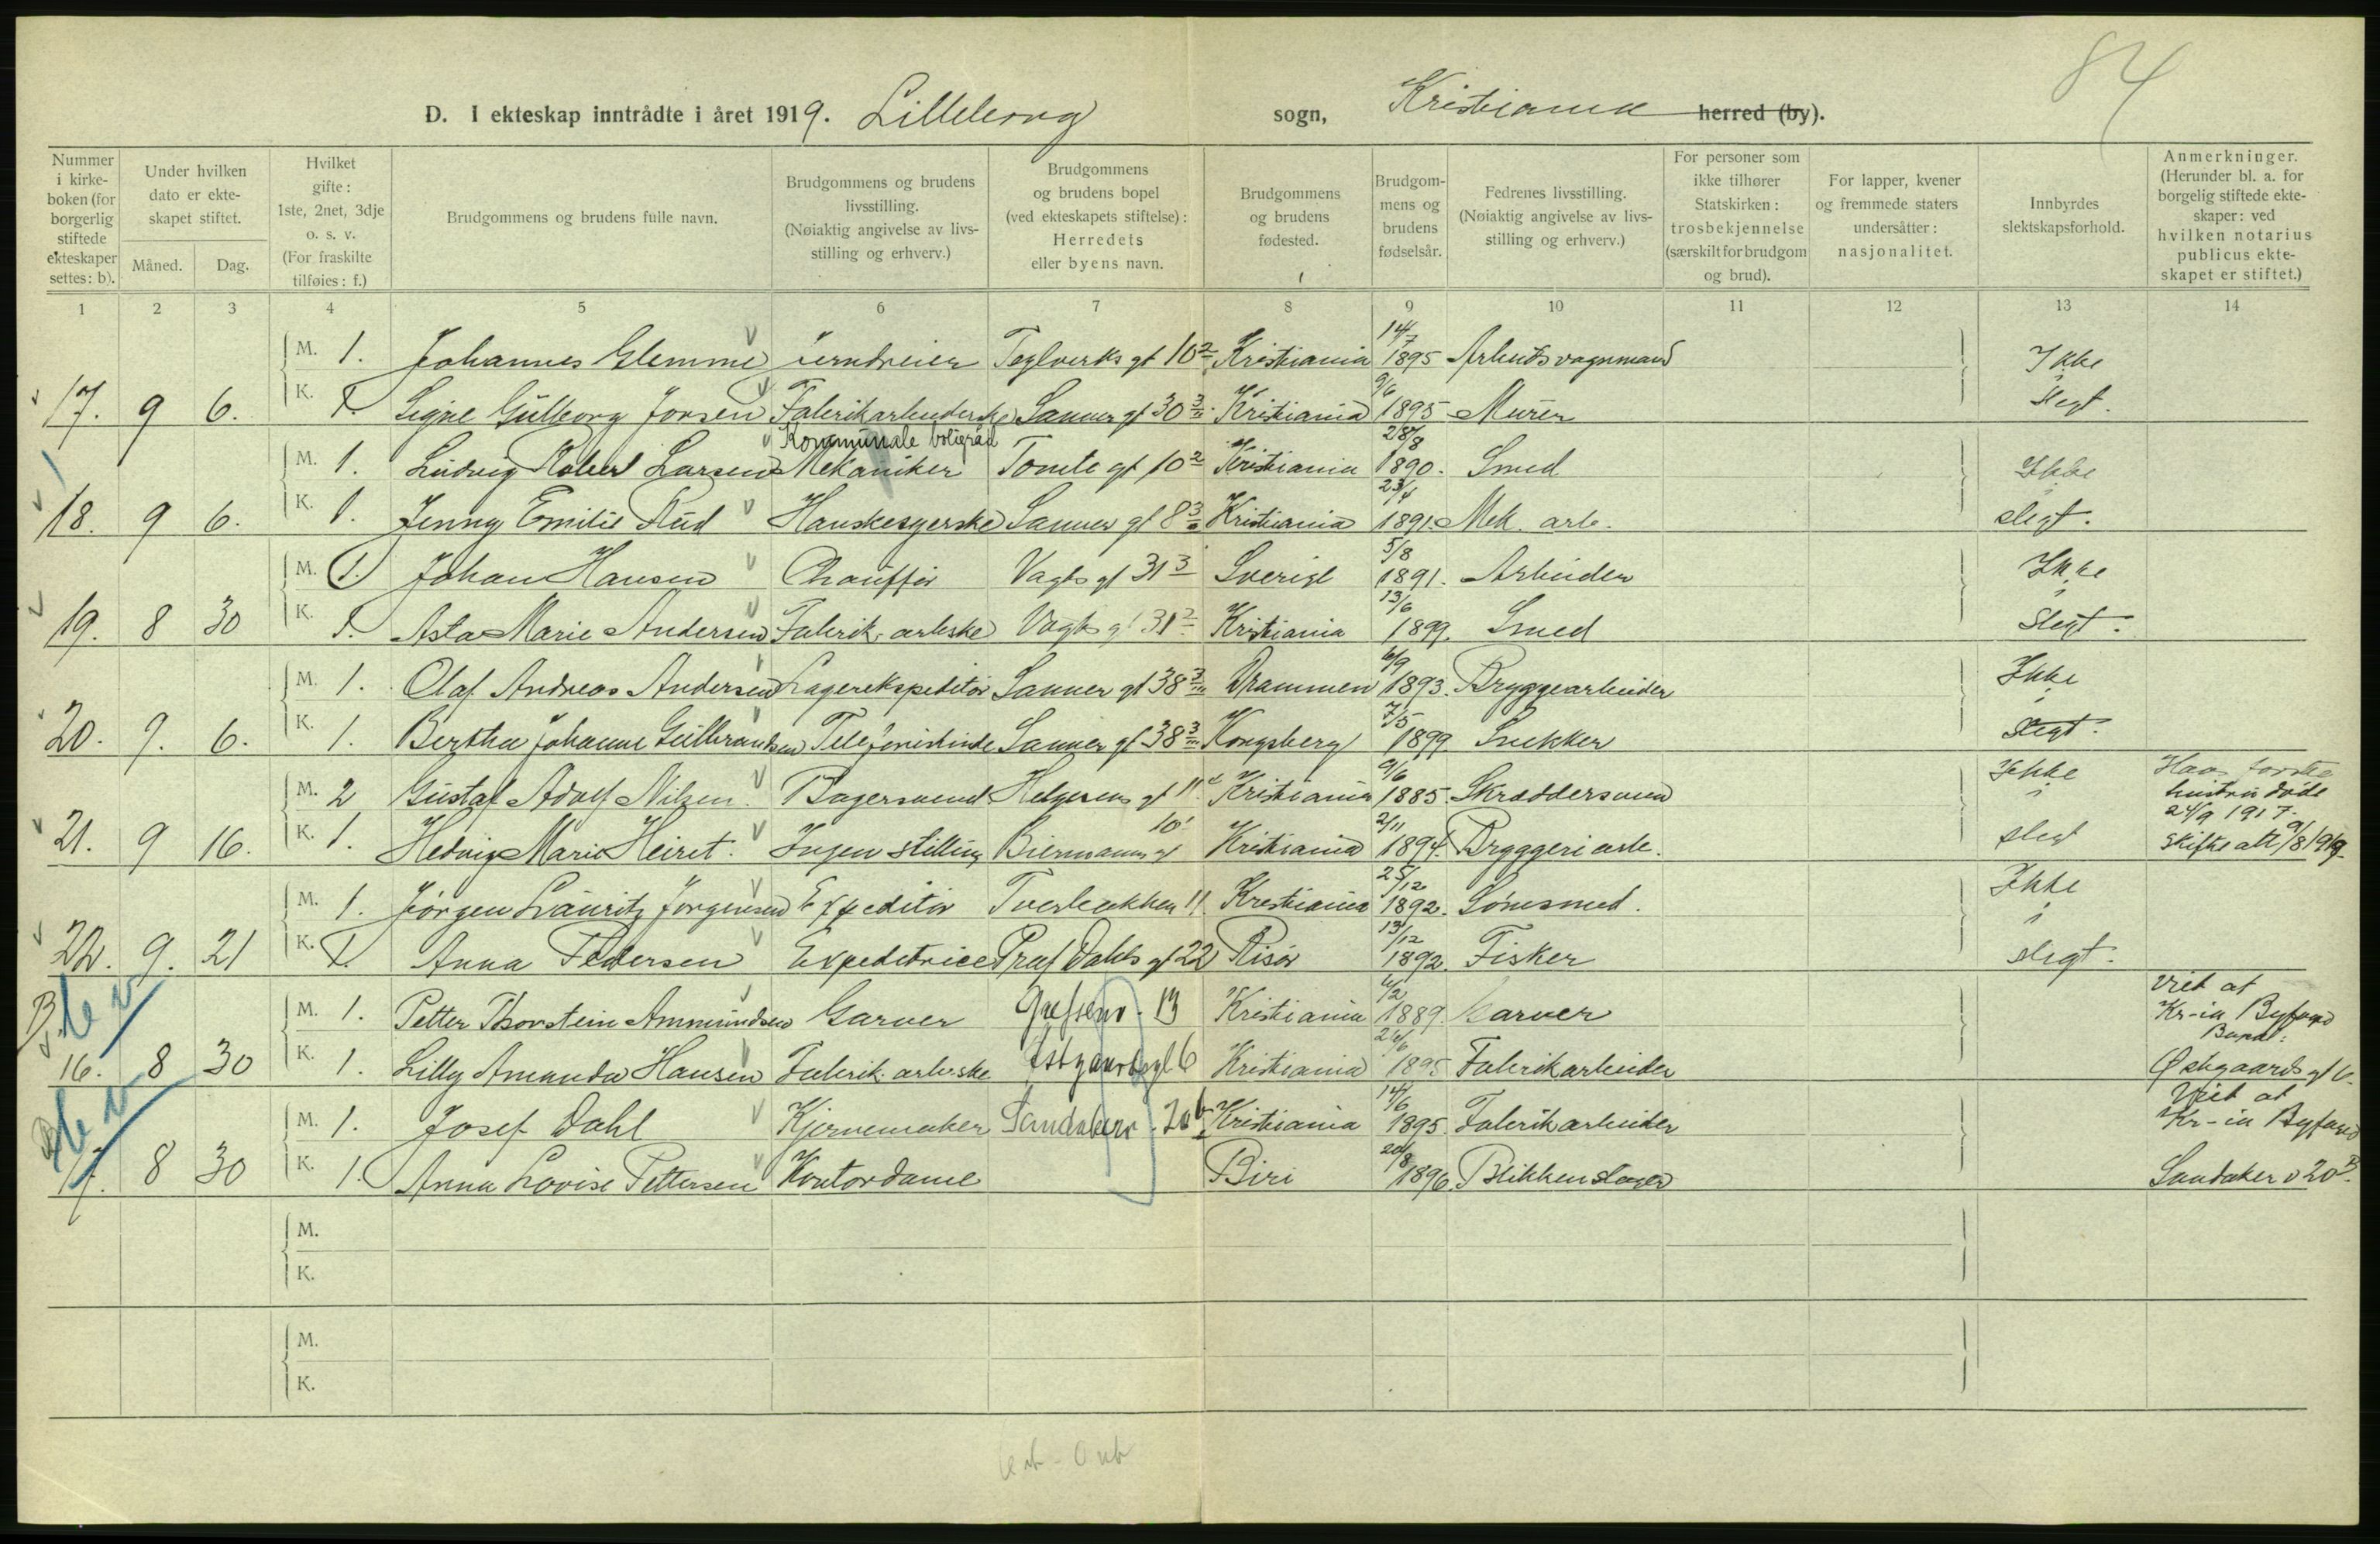 84
D. I ekteskap inntrådte i året 1919. Lilleborg sogn, Kristiania herred (by).
Nummer i kirke-boken (for borgerlig stiftede ekteskaper settes: b).
Under hvilken dato er ekte-skapet stiftet.
Måned. Dag.
Hvilket gifte: 1ste, 2net, 3dje o. s. v. (For fraskilte tilføies: f.)
Brudgommens og brudens fulle navn.
Brudgommens og brudens livsstilling. (Nøiaktig angivelse av livs-stilling og erhverv.)
Brudgommens og brudens bopel (ved ekteskapets stiftelse): Herredets eller byens navn.
Brudgommens og brudens fødested.
Brudgom-mens og brudens fødselsår.
Fedrenes livsstilling. (Nøiaktig angivelse av livs-stilling og erhverv.)
For personer som ikke tilhører Statskirken: trosbekjennelse (særskilt for brudgom og brud).
For lapper, kvener og fremmede staters undersåtter: nasjonalitet.
Innbyrdes slektskapsforhold.
Anmerkninger. (Herunder bl. a. for borgelig stiftede ekte-skaper: ved hvilken notarius publicus ekte-skapet er stiftet.)
1 2 3 4 5 6 7 8 9 10 11 12 13 14
M. 1. Johannes Glemme jerndreier Teglverks gt 10 2 Kristiania 14/7 1895 Arbeidsvognmand Ikke
17. 9 6. K. 1. Signe Gulborg Jonsen Fabrikarbeiderske Sanner gt 30 3 Kristiania 9/6 1895 Murer i slegt.
Kommunale boligråd
M. 1. Ludvig Robert Larsen Mekaniker Tomte gt 10 2 Kristiania 28/8 1890. Smed Ikke
18. 9 6. K. 1. Jenny Emilie Rud Hanskesyerske Sanner gt 8 3 Kristiania 23/4 1891. Mek. arb. slegt.
M. 1. Johan Hansen Chauffør Vagts gt 31 3 Sverige 5/8 1891. Arbeider Ikke
19. 8 30 K. 1. Asta Marie Andersen Fabrik. arb.ske Vagts gt 31 2 Kristiania 13/6 1899. Smed i slegt.
M. 1. Olaf Andreas Andersen Lagerekspeditør Sanner gt 38 3 Drammen 6/9 1893. Bryggearbeider Ikke
20. 9. 6. K. 1. Bertha Johanne Gulbrandsen Telefonistinde Sanner gt 38 3 Kongsberg 7/5 1899 Snekker i slegt.
M. 2 Gustaf Adolf Nilsen. Bagersvend Helgesens gt 11. Kristiania 9/6 1885. Skræddersvend Ikke Hans første hustru døde 24/9 1917.
21. 9 16. K. 1. Hedvig Marie Heiret. Ingen stilling Biermanns gt 10 Kristiania 2/11 1894. Bryggeriarb. i slegt skifte att 9/8 1919.
M. 1. Jörgen Lauritz Jörgensen Expeditør Tverbakken 11. Kristiania 25/12 1892. Sömsmed. Ikke
22. 9. 21 K. 1. Anna Pedersen Expeditrice Prof Dahls gt 22 Risør 13/12 1892. Fisker i slegt.
B. M. 1. Petter Thorstein Ammundsen Garver Grefsenv. 13 Kristiania 4/2 1889. Garver Viet af Kr-ia Byfogd
16. 8 30 K. 1. Lilly Amanda Hansen Fabrik. arb.ske Østgaardsgt 6 Kristiania 26/6 1895 Fabrikarbeider Østgaards gt 6.
M. 1. Josef Dahl Kjernemaker Sandakerv. 20 b Kristiania 14/6 1895. Fabrikarbeider Viet af Kr-ia Byfogd
17. 8 30 K. 1. Anna Lovise Pettersen Kontordame Biri 20/8 1896. Blikkenslager Sandaker v 20 B.
M.
K.
M.
K.